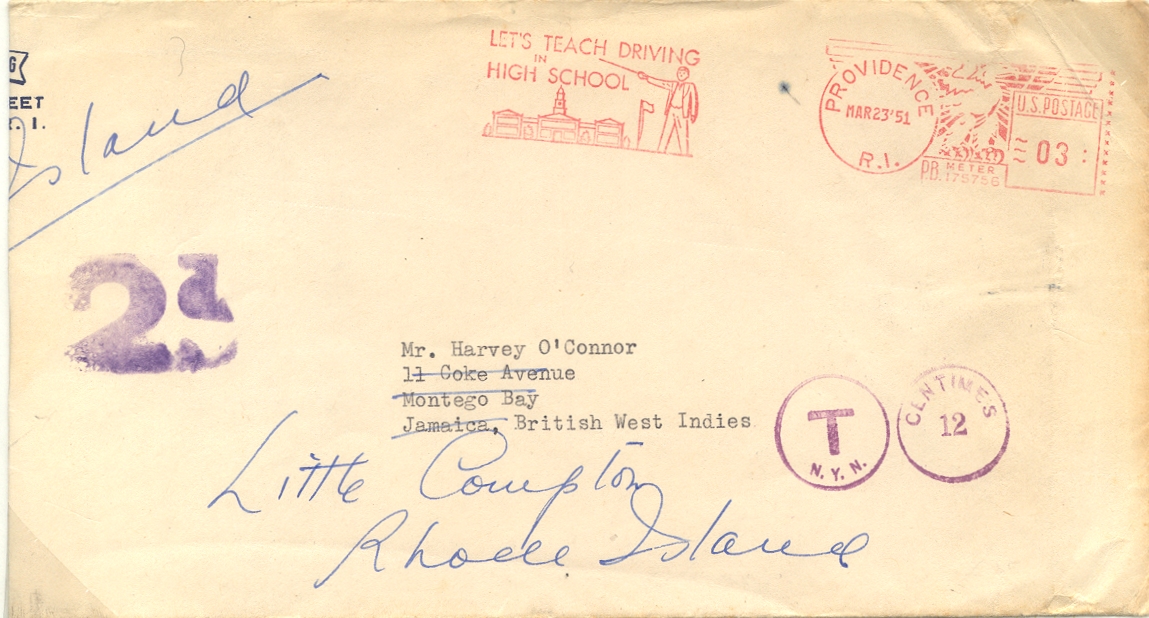 G
EET
R. I.
Island
LET'S TEACH DRIVING
IN
HIGH SCHOOL
PROVIDENCE
MAR23'51
R.I.
U.S.POSTAGE
03
P.B. METER
175756
2d
Mr. Harvey O'Connor
11 Coke Avenue
Montego Bay
Jamaica, British West Indies
T
N.Y.N.
CENTIMES
12
Little Compton
Rhode Island